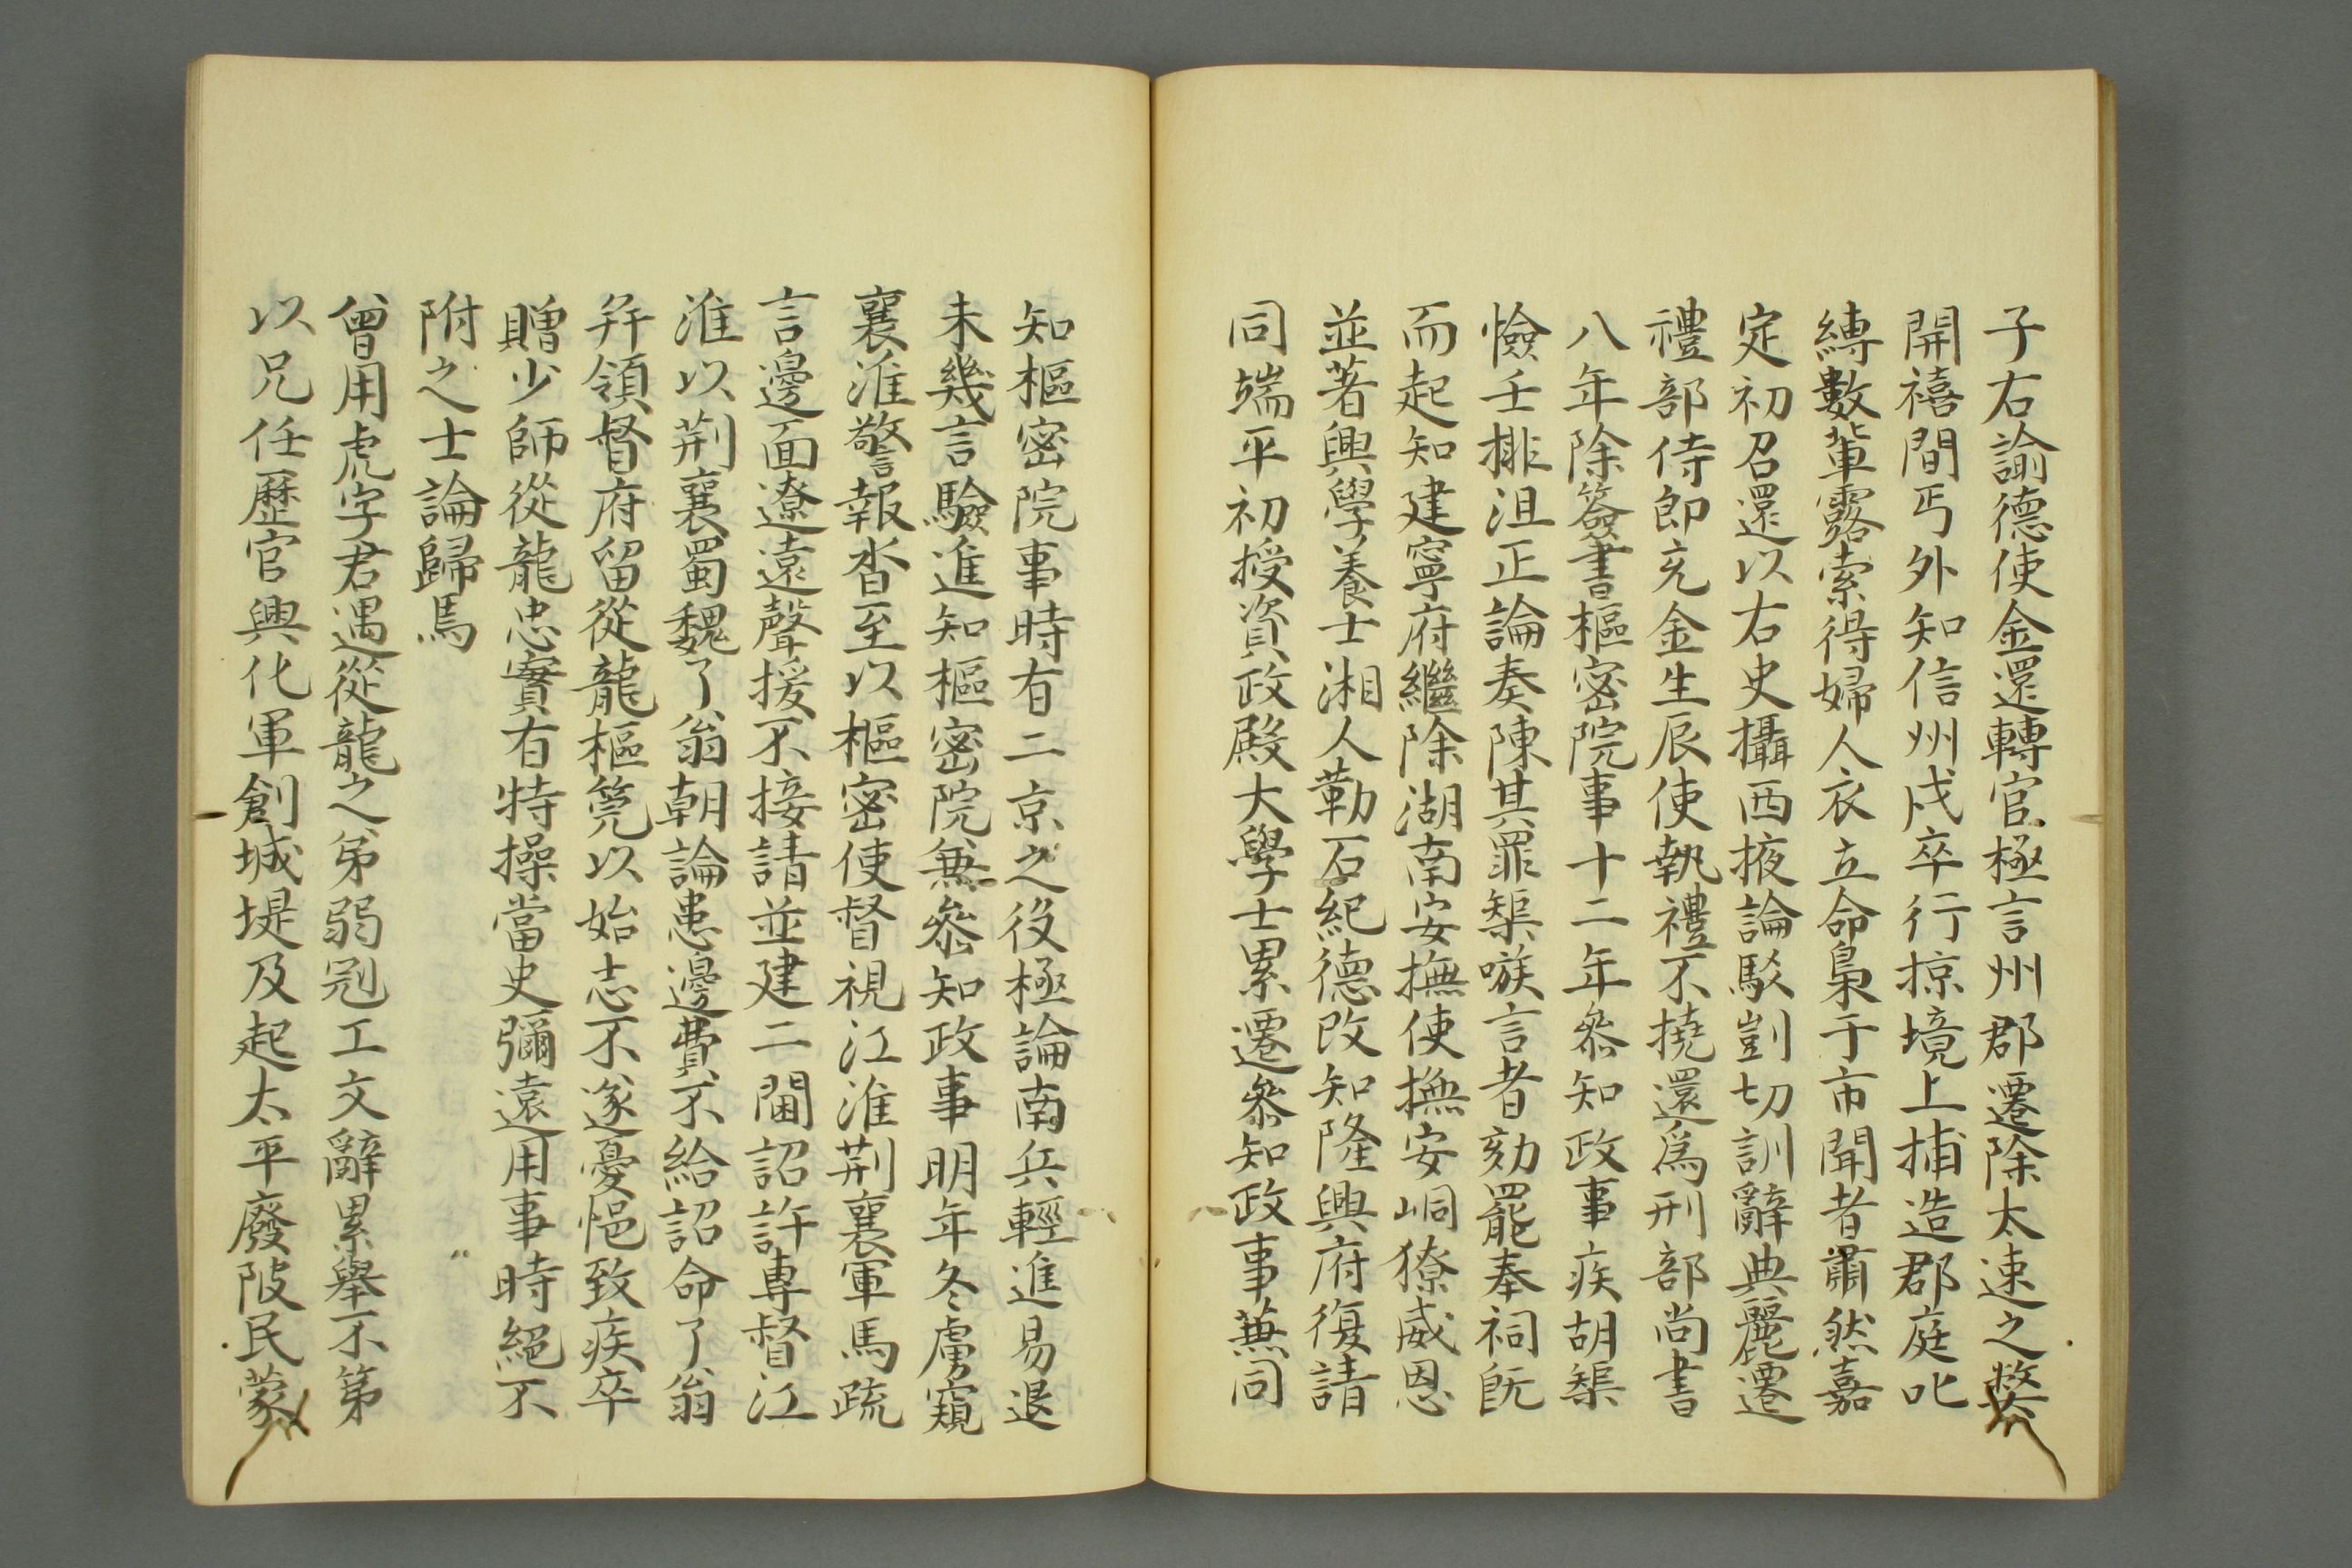 子右諭德使金還轉官極言州郡遷除太速之弊
開禧間丐外知信州戍卒行掠境上捕造郡庭叱
縳數輩露索得婦人衣立命梟于市聞者肅然嘉
定初召還以右史攝西掖論駁剴切訓辭典麗遷
禮部侍郎充金生辰使執禮不撓還爲刑部尚書
八年除簽書樞密院事十二年叅知政事疾胡榘
憸壬排沮正論奏陳其罪榘嗾言者劾罷奉祠旣
而起知建寧府繼除湖南安撫使撫安峒獠威恩
並著興學養士湘人勒石紀德改知隆興府復請
同端平初授資政殿大學士累遷叅知政事蕪同
知樞密院事時有二京之役極論南兵輕進易退
未幾言驗進知樞密院兼叅知政事明年冬虜窺
襄淮警報沓至以樞密使督視江淮荆襄軍馬疏
言邊面遼遠聲援不接請並建二閫詔許專督江
淮以荆襄蜀魏了翁朝論患邊費不給詔命了翁
幷領督府留從龍樞筦以始志不遂憂悒致疾卒
贈少師從龍忠實有特操當史彌遠用事時絕不
附之士論歸焉
曾用虎字君遇從龍之弟弱冠工文辭累舉不第
以兄任歷官興化軍創城堤及起太平廢陂民蒙